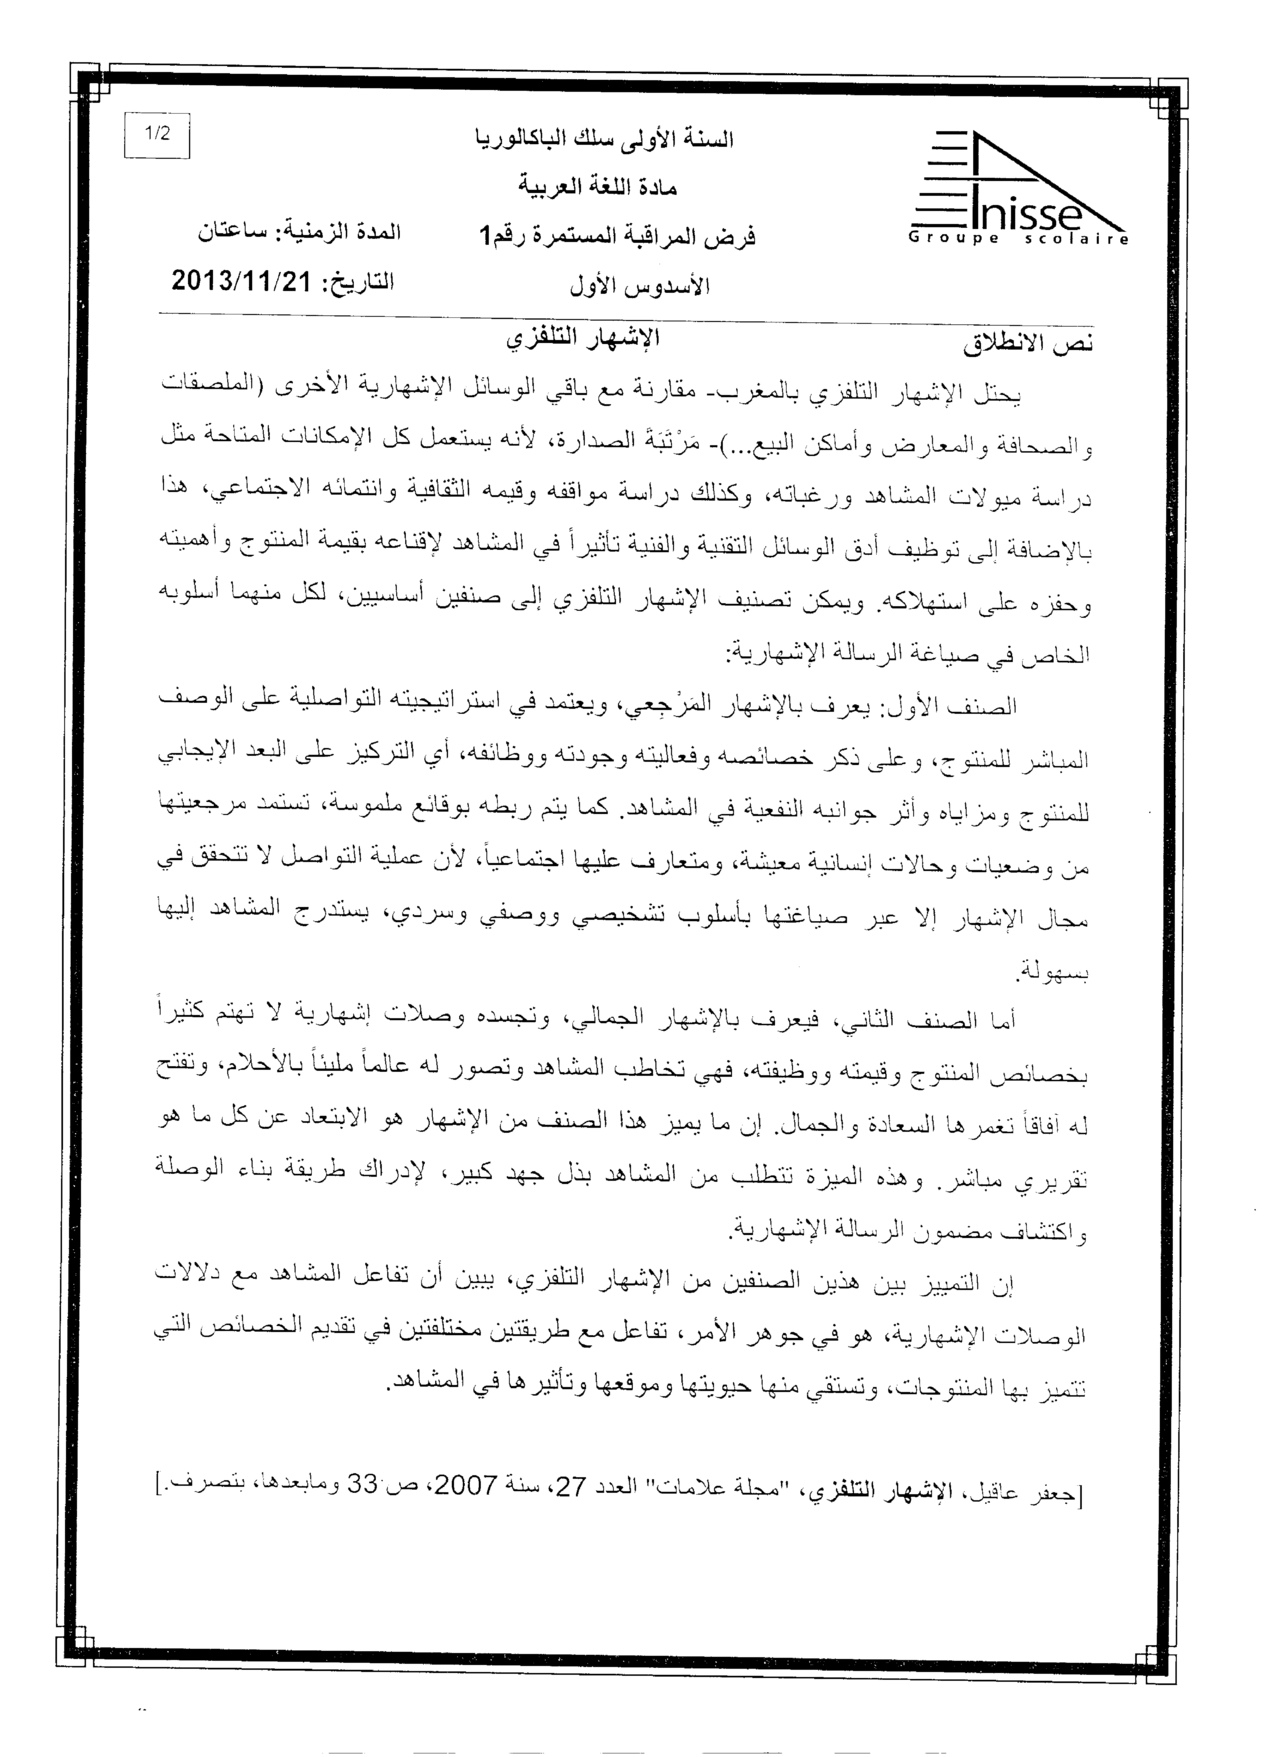 1/2
السنة الأولى سلك الباكالوريا
مادة اللغة العربية
فرض المراقبة المستمرة رقم1
المدة الزمنية: ساعتان
الأسدوس الأول
التاريخ: 2013/11/21
Anisse
Groupe scolaire
نص الانطلاق
الإشهار التلفزي
يحتل الإشهار التلفزي بالمغرب- مقارنة مع باقي الوسائل الإشهارية الأخرى (الملصقات
والصحافة والمعارض وأماكن البيع...)- مَرْتَبَةَ الصدارة، لأنه يستعمل كل الإمكانات المتاحة مثل
دراسة ميولات المشاهد ورغباته، وكذلك دراسة مواقفه وقيمه الثقافية وانتمائه الاجتماعي، هذا
بالإضافة إلى توظيف أدق الوسائل التقنية والفنية تأثيراً في المشاهد لإقناعه بقيمة المنتوج وأهميته
وحفزه على استهلاكه. ويمكن تصنيف الإشهار التلفزي إلى صنفين أساسيين، لكل منهما أسلوبه
الخاص في صياغة الرسالة الإشهارية:
الصنف الأول: يعرف بالإشهار المَرْجِعي، ويعتمد في استراتيجيته التواصلية على الوصف
المباشر للمنتوج، وعلى ذكر خصائصه وفعاليته وجودته ووظائفه، أي التركيز على البعد الإيجابي
للمنتوج ومزاياه وأثر جوانبه النفعية في المشاهد. كما يتم ربطه بوقائع ملموسة، تستمد مرجعيتها
من وضعيات وحالات إنسانية معيشة، ومتعارف عليها اجتماعياً، لأن عملية التواصل لا تتحقق في
مجال الإشهار إلا عبر صياغتها بأسلوب تشخيصي ووصفي وسردي، يستدرج المشاهد إليها
بسهولة.
أما الصنف الثاني، فيعرف بالإشهار الجمالي، وتجسده وصلات إشهارية لا تهتم كثيراً
بخصائص المنتوج وقيمته ووظيفته، فهي تخاطب المشاهد وتصور له عالماً مليئاً بالأحلام، وتفتح
له آفاقاً تغمرها السعادة والجمال. إن ما يميز هذا الصنف من الإشهار هو الابتعاد عن كل ما هو
تقريري مباشر. وهذه الميزة تتطلب من المشاهد بذل جهد كبير، لإدراك طريقة بناء الوصلة
واكتشاف مضمون الرسالة الإشهارية.
إن التمييز بين هذين الصنفين من الإشهار التلفزي، يبين أن تفاعل المشاهد مع دلالات
الوصلات الإشهارية، هو في جوهر الأمر، تفاعل مع طريقتين مختلفتين في تقديم الخصائص التي
تتميز بها المنتوجات، وتستقي منها حيويتها وموقعها وتأثيرها في المشاهد.
[جعفر عاقيل، الإشهار التلفزي، "مجلة علامات" العدد 27، سنة 2007، ص 33 ومابعدها، بتصرف.]